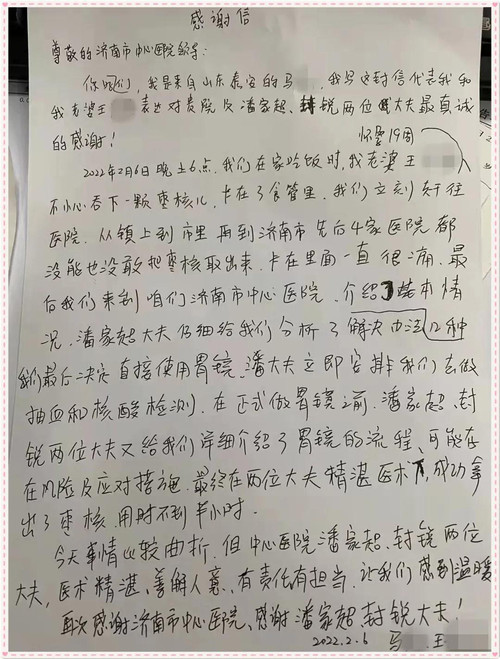 感谢信
尊敬的济南市中心医院领导:
你们好,我是来自山东泰安的马 ,我以这封信代表我和
我老婆王 表达对贵院及潘家起、封锐两位大夫最真诚
的感谢!
怀孕19周
2022年2月6日晚上6点,我们在家吃饭时,我老婆王
不小心吞下一颗枣核儿,卡在了食管里,我们立刻赶往
医院,从镇上到市里再到济南市先后4家医院都
没能也没敢把枣核取出来,卡在里面一直很痛,最
后我们来到咱们济南市中心医院,介绍了基本情
况,潘家起大夫仔细给我们分析了解决办法几种
我们最后决定直接使用胃镜,潘大夫立即安排我们去做
抽血和核酸检测,在正式做胃镜之前,潘家起、封
锐两位大夫又给我们详细介绍了胃镜的流程、可能存
在风险及应对措施,最终在两位大夫精湛医术下,成功拿
出了枣核,用时不到半小时。
今天事情比较曲折,但中心医院潘家起、封锐两位
大夫,医术精湛、善解人意、有责任有担当,让我们感到温暖
再次感谢济南市中心医院、感谢潘家起、封锐大夫!
2022.2.6 马 王